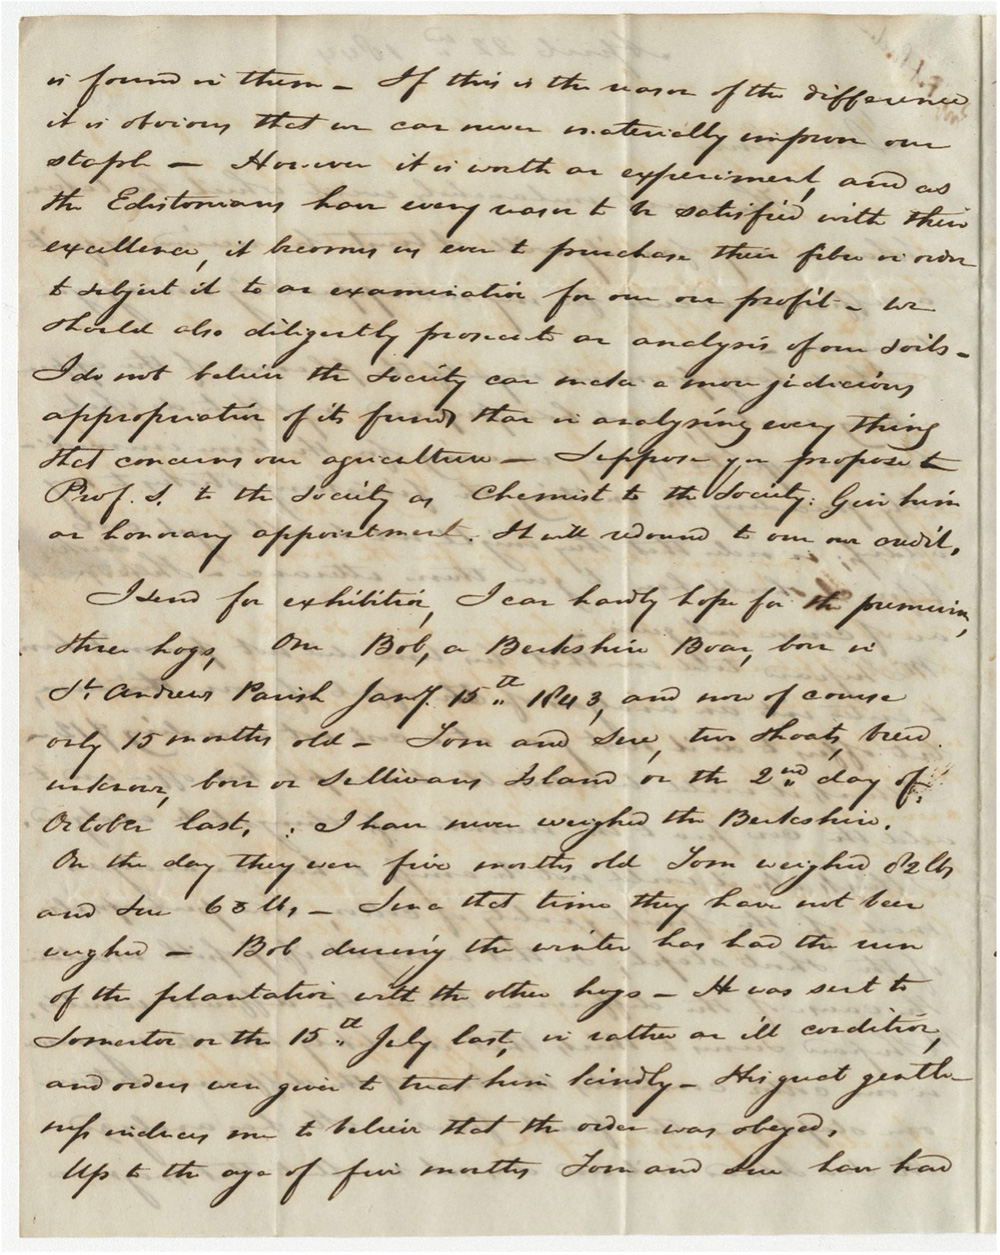 is found in them - If this is the reason of the difference
it is obvious that we can never materially improve our
staple - However it is worth an experiment, and as
the Edistonians have every reason to be satisfied with their
excellence, it becomes us even to purchase their fibre in order
to subject it to an examination for our own profit - We
should also diligently prosecute an analysis of our soils -
I do not believe the Society can make a more judicious
appropriation of its funds than in analysing every thing
that concerns our agriculture - Suppose you propose to
Prof. S. to the Society as Chemist to the Society: Give him
an honorary appointment. It will redound to our own credit.
I send for exhibition, I can hardly hope for the premium,
three hogs, One Bob, a Berkshire Boar, born in
St. Andrews Parish Jany. 15th 1843, and now of course
only 15 months old - Tom and Sue, two shoats, breed
unknown, born on Sullivans Island on the 2nd day of
October last. I have never weighed the Berkshire.
On the day they were five months old Tom weighed 82 lbs
and Sue 63 lbs, - Since that time they have not been
weighed - Bob during the winter has had the run
of the plantation with the other hogs - He was sent to
Somerton on the 15th July last, in rather an ill condition,
and orders were given to treat him kindly - His great gentle-
ness induces me to believe that the order was obeyed.
Up to the age of five months Tom and Sue have had